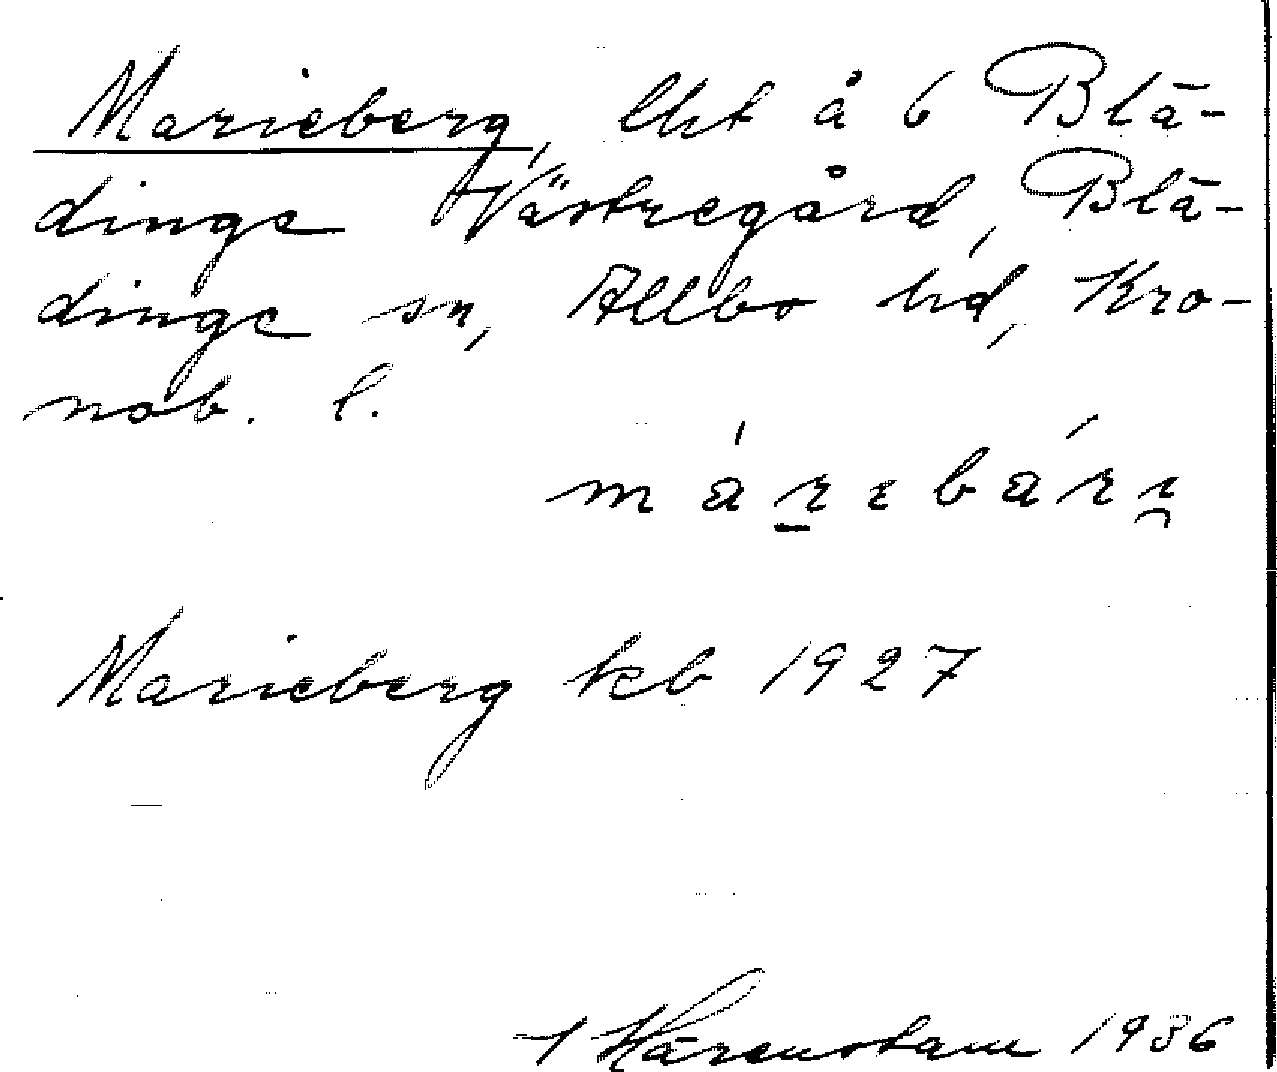 Marieberg, lht å 6 Blä-
dinge Västregård, Blä-
dinge sn, Allbo hd, Kro-
nob. l.
Marieberg kb 1927
Härenstam 1936